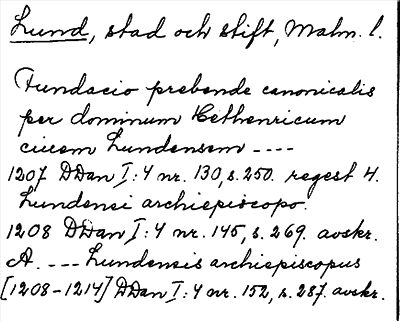 Lund, stad och stift, Malm. l.
Fundacio prebende canonicalis
per dominum Hethenricum
ciuem Lundensem ----
1207 DDan I:4 nr. 130, s. 250. regest 4.
Lundensi archiepiscopo.
1208 DDan I:4 nr. 145, s. 269. avskr.
A. --- Lundensis archiepiscopus
[1208-1214] DDan I:4 nr. 152, s. 287. avskr.